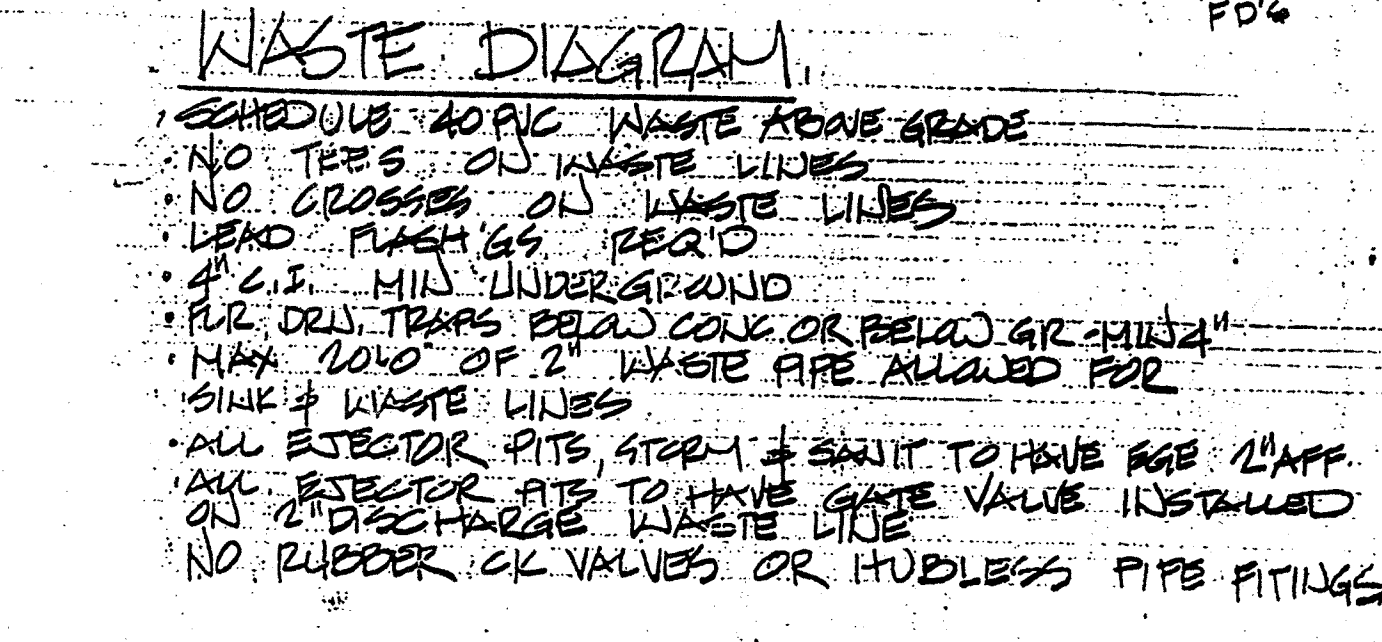 FD'S
WASTE DIAGRAM.
SCHEDULE 40 PVC WASTE ABOVE GRADE
• NO TEES ON WASTE LINES
• NO CROSSES ON WASTE LINES
• LEAD FLASH'GS REQ'D
• 4" C.I. MIN UNDERGROUND
• FLR DRN. TRAPS BELOW CONC. OR BELOW GR - MIN 4"
• MAX 20'-0" OF 2" WASTE PIPE ALLOWED FOR
SINK & WASTE LINES
• ALL EJECTOR PITS, STORM & SANIT TO HAVE EGE 2" AFF.
ALL EJECTOR PITS TO HAVE GATE VALVE INSTALLED
ON 2" DISCHARGE WASTE LINE
NO RUBBER CK VALVES OR HUBLESS PIPE FITIINGS